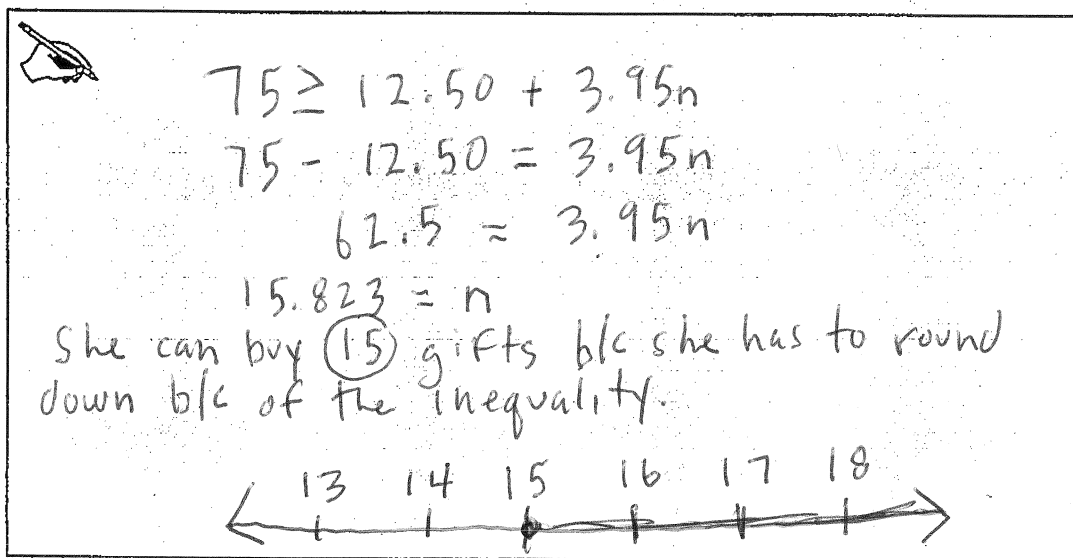 75 ≥ 12.50 + 3.95n
75 - 12.50 = 3.95n
62.5 = 3.95n
15.823 = n
She can buy 15 gifts b/c she has to round
down b/c of the inequality.
13 14 15 16 17 18